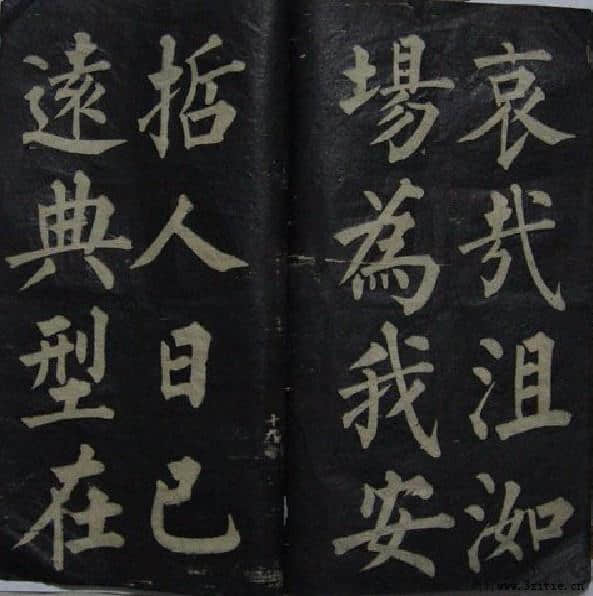 哀㢤沮洳
場為我安
哲人日已
遠典型在
十九
www.3zitie.cn